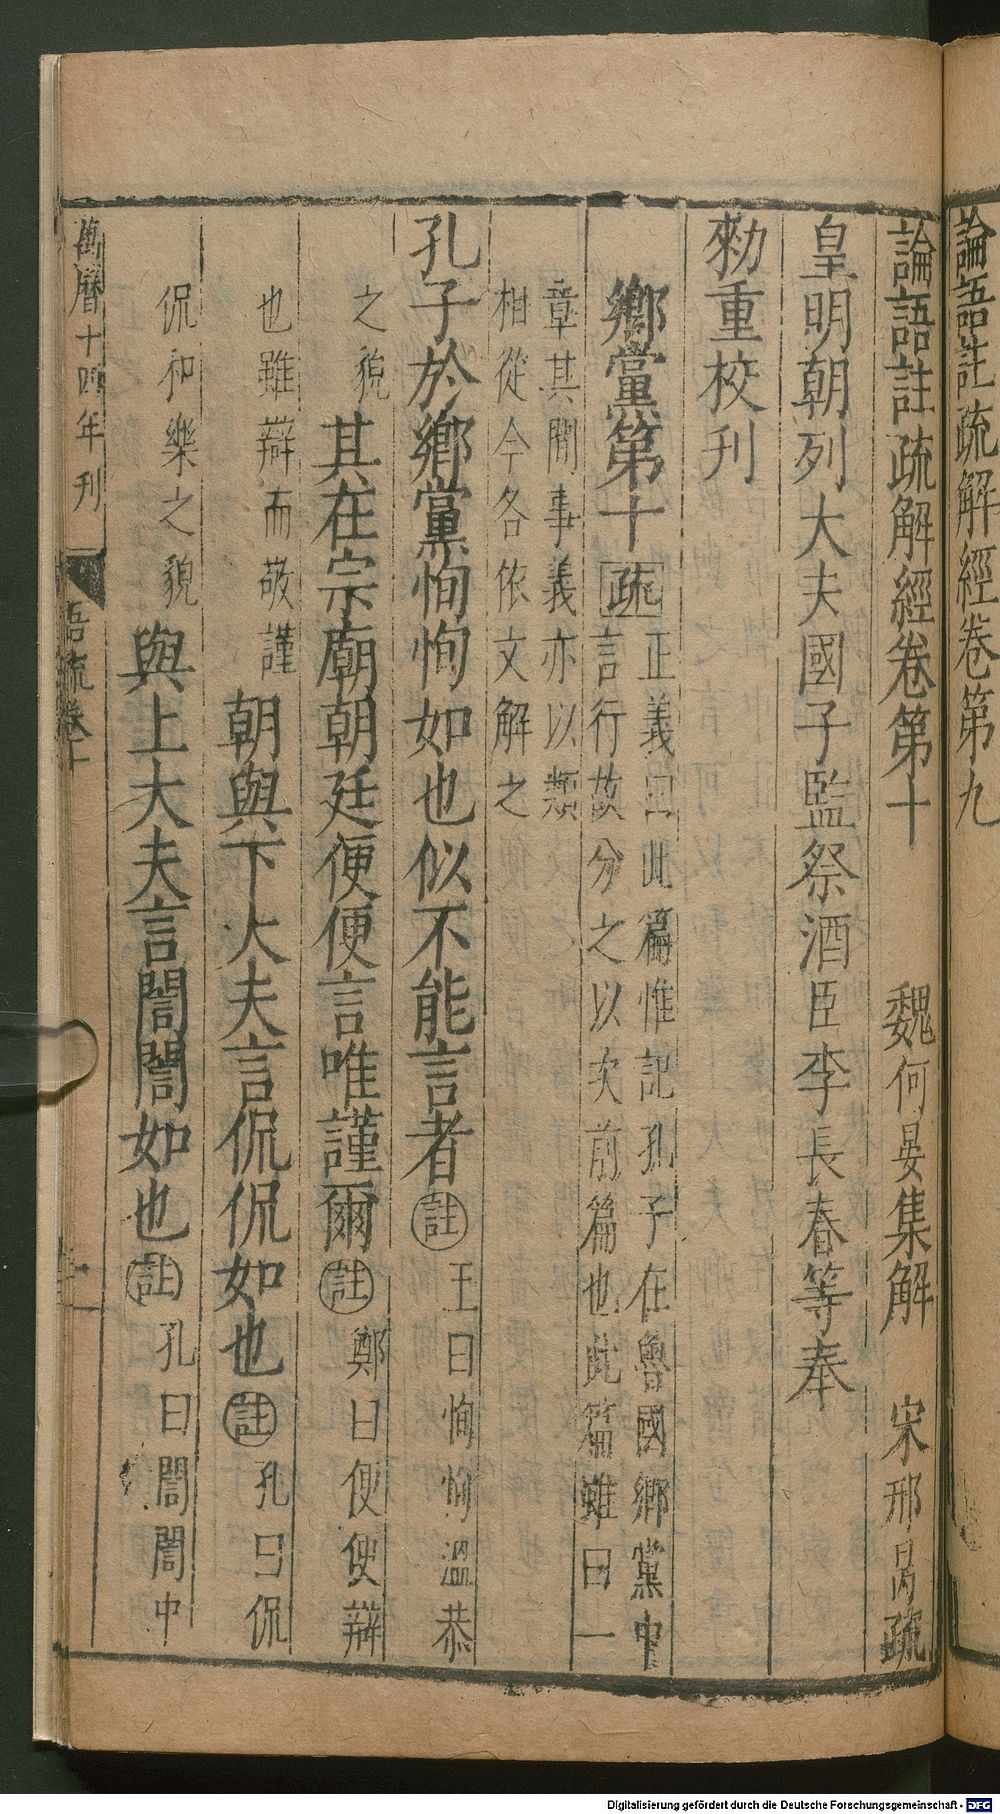 論語註疏解經卷第九
論語註疏解經卷第十 魏何晏集解 宋邢昺疏
皇明朝列大夫國子監祭酒臣李長春等奉
勑重校刊
鄉黨第十 疏 正義曰此篇惟記孔子在魯國鄉黨中
言行故分之以次前篇也此篇雖曰一
章其間事義亦以類
相從今各依文解之
孔子於鄉黨恂恂如也似不能言者 註 王曰恂恂溫恭
之貌 其在宗廟朝廷便便言唯謹爾 註 鄭曰便便辯
也雖辯而敬謹 朝與下大夫言侃侃如也 註 孔曰侃
侃和樂之貌 與上大夫言誾誾如也 註 孔曰誾誾中
萬曆十四年刊 語疏卷十 一
Digitalisierung gefördert durch die Deutsche Forschungsgemeinschaft - DFG